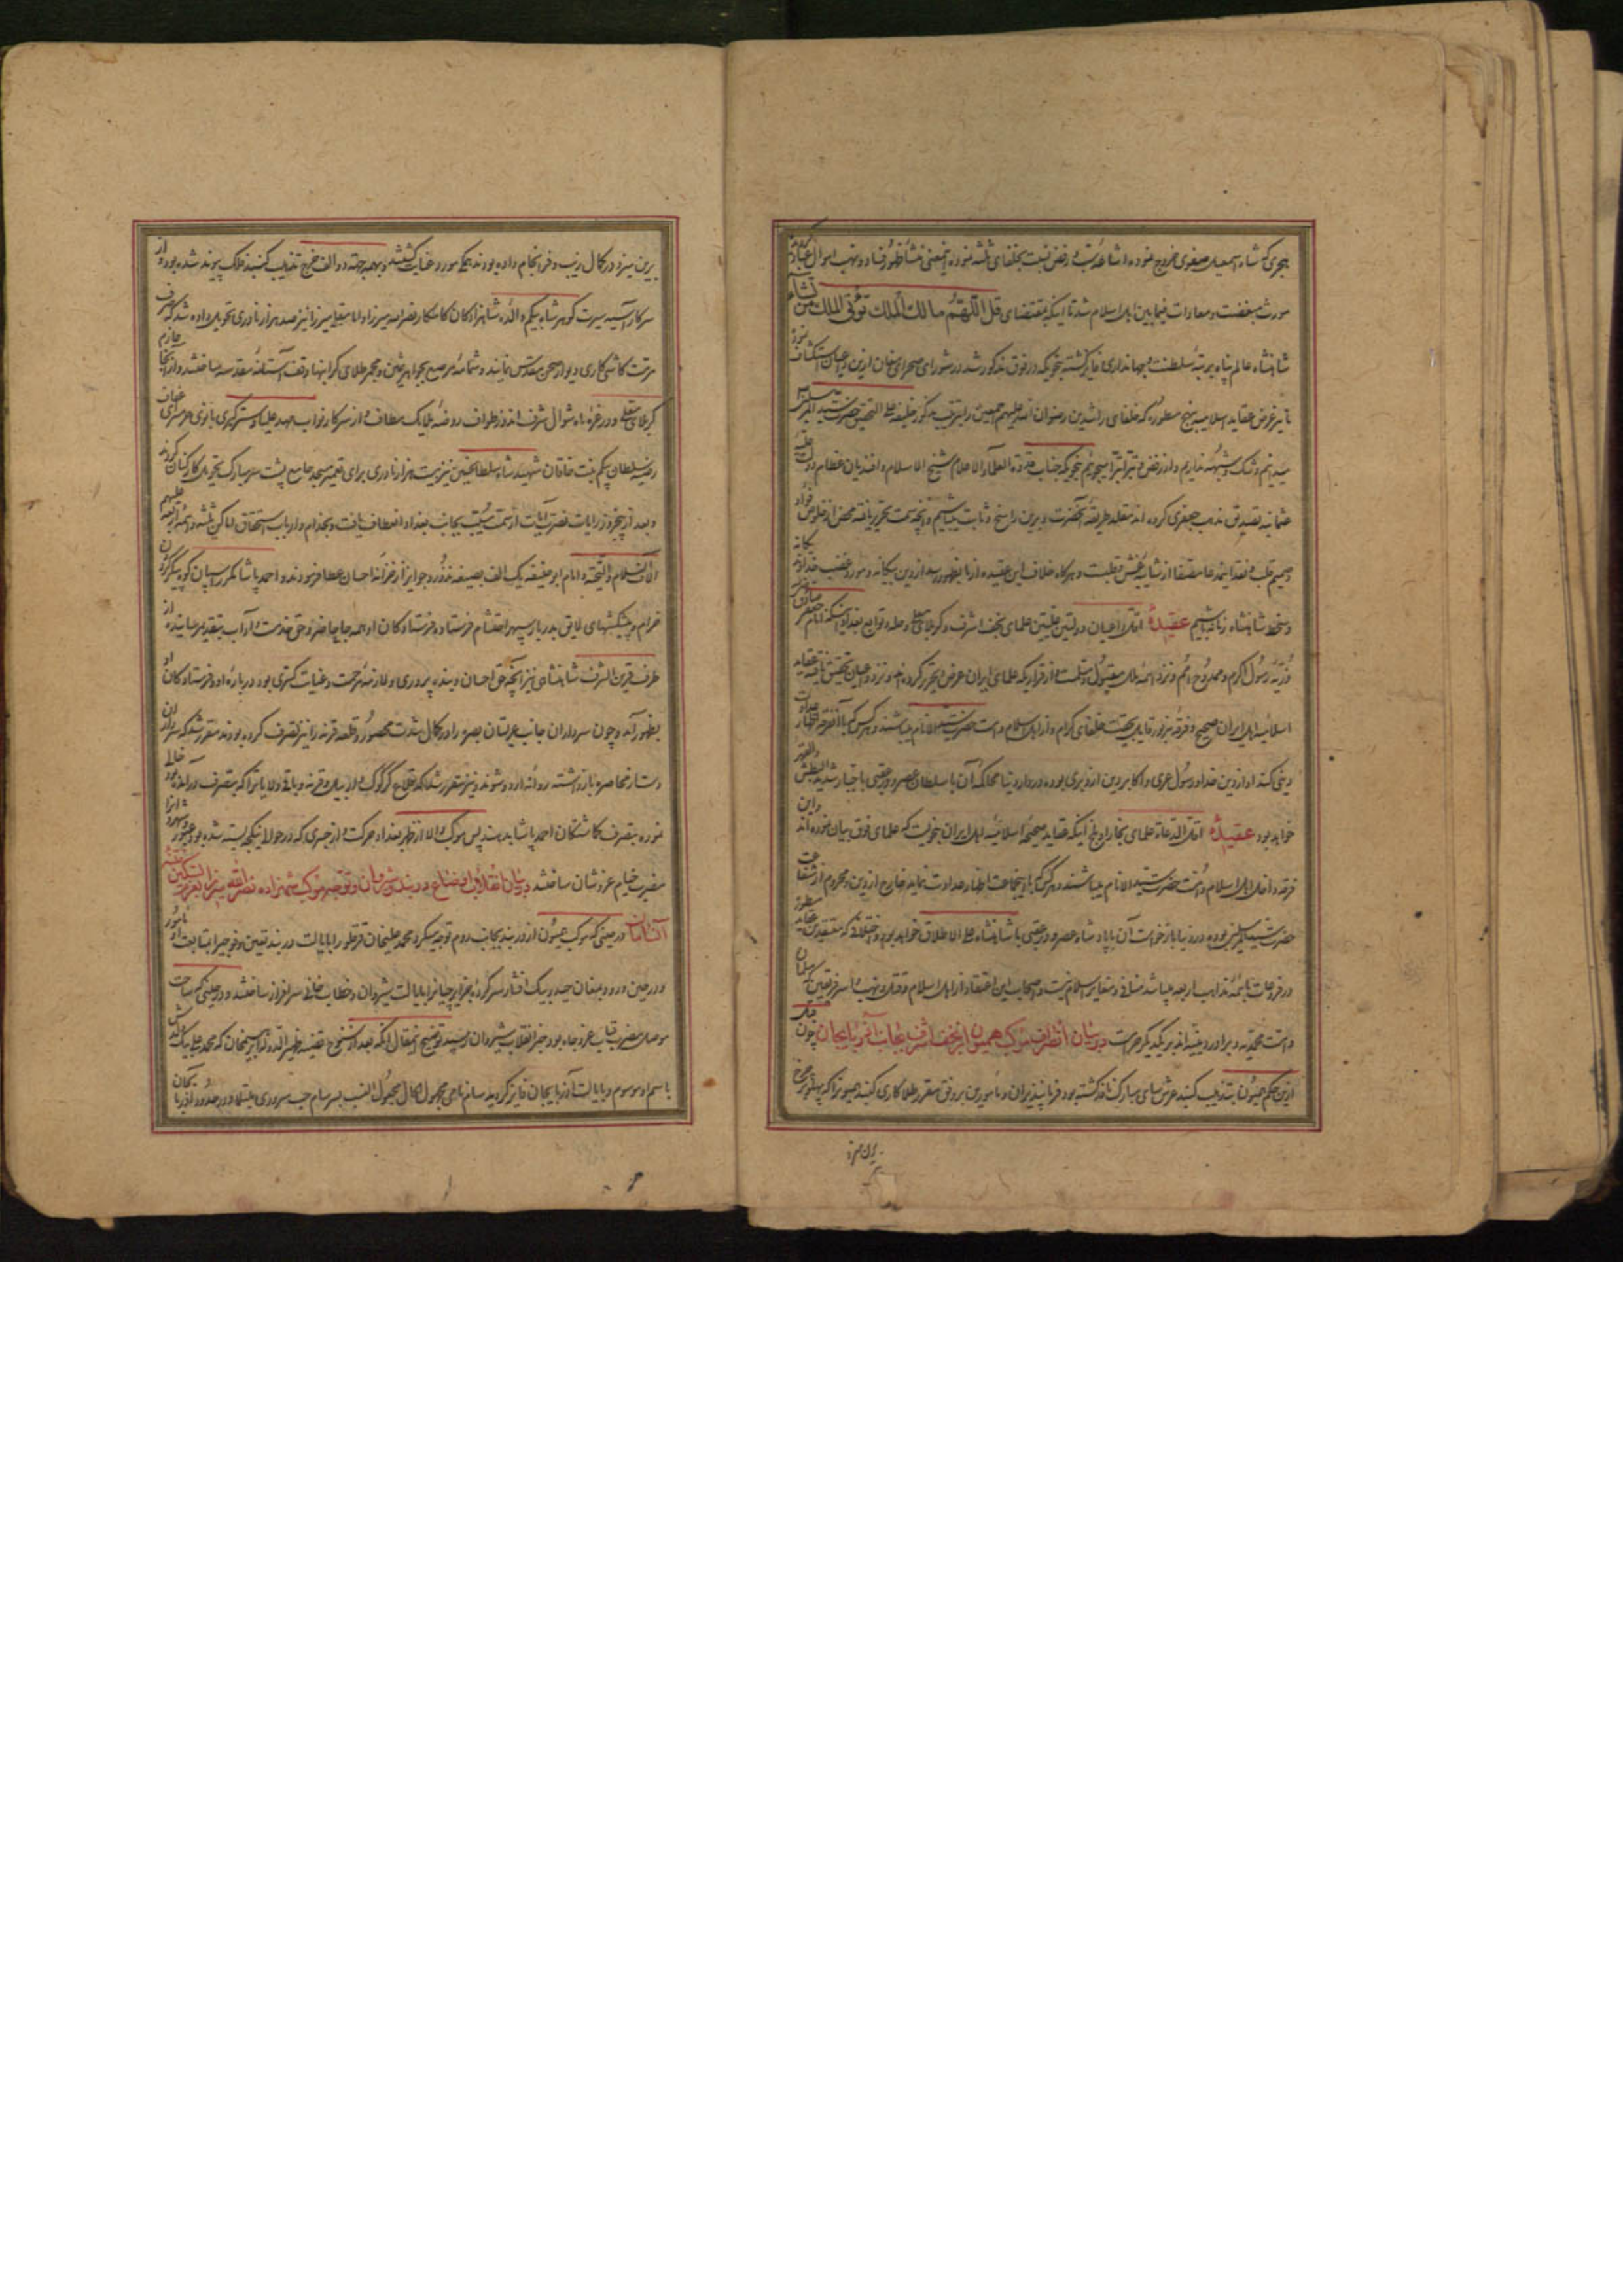 هجری که شاه اسمعیل صفوی خروج نموده اشاعهٔ سب و رفض نسبت بخلفای ثلثه نموده اینمعنی منشأ ظهور فساد و نهب اموال عباد کردید
مورث مبغضت و معادات فیمابین اهل اسلام شد تا اینکه بمقتضای قل اللّهُمّ مالك الملك تؤتی الملك من تشاء
شاهنشاه عالم پناه بمرتبهٔ سلطنت و جهانداری فایز کشته بنحویکه در فوق مذکور شد در شورای صحرای مغان ازین داعیان استکشاف نمود
ما نیز عرض عقاید اسلامیه بنهج مسطوره که خلفای راشدین رضوان الله علیهم اجمعین را بترتیب مذکور خلیفه علی التحقیق حضرت سید المرسلین
میدانیم و شک و شبهه نداریم و از رفض و تبرا تبرا میجوئیم بنحویکه جناب قدوة العلماء الاعلام شیخ الاسلام و افندیان عظام دولت علیه
عثمانیه تصدیق مذهب جعفری کرده اند مقلد طریقهٔ آنحضرت و برین راسخ و ثابت میباشیم و آنچه سمت تحریر یافته محض از خلوص فؤاد
و صمیم قلب و نقد اینمدعا مصفا از شایبهٔ غش و قلبست و هرکاه خلاف این عقیده از ما بظهور رسد از دین بیکانه و مورد غضب خداوند یکانه
و سخط شاهنشاه زمانه باشیم عقیدهٔ اقل داعیان دولتین علیتین علمای نجف اشرف و کربلای معلی و حله و توابع بغداد اینکه امام جعفر صادق
ذریهٔ رسول اکرم و ممدوح امم و نزد ائمه ملت مقبول و مسلمست و از قراریکه علمای ایران عرض و تحریر کرده اند و نزد داعیان تحقیق یافته عقاید
اسلامیهٔ اهل ایران صحیح و فرقهٔ مزبور قایل بحقیت خلفای کرام و از اهل اسلام و امت حضرت سید الانام میباشند و هر کس که با آنفرقه اظهار عداوت
دینی کند او از دین خدا و رسول عری و اکابر دین ازو بری بوده در دار دنیا محاکمهٔ آن با سلطان عصر و در عقبی با جبار شدید البطش والقهر
خواهد بود عقیدهٔ اقل الدعاة علمای بخارا و بلخ اینکه عقاید صحیحهٔ اسلامیهٔ اهل ایران بنحویست که علمای فوق بیان نموده اند و این
فرقه داخل اهل اسلام و امت حضرت سید الانام میباشند و هر کس که با اینجماعت اظهار عداوت نماید خارج از دین و محروم از شفاعت
حضرت سید المرسلین بوده در دنیا بازخواست آن با پادشاه عصر و در عقبی با شاهنشاه علی الاطلاق خواهد بود و اختلافی که معتقدین عقاید مسطوره
در فروعات با ائمه مذاهب اربعه میباشد منافی و مغایر اسلام نیست و اصحاب این اعتقاد از اهل اسلام و قتل و نهب و اسر فرقتین که مسلمان
و امت محمدیه و برادر دینیه اند بر یکدیکر حرامست در بیان انطراف موکب همیون از نجف اشرف بجانب آذربایجان چون قبل
ازین حکم همیون بتذهیب کنبد عرش سای مبارک نافذ کشته بود فرمانپذیران و مأمورین بر وفق مقرر طلاکاری کنبد همیون را که پهلو بر چرخ
برین میزد
برین میزد در کمال زیب و فر انجام داده بودند همکی مورد عنایت کشتند و بجهة جهته دو الف خرج تذهیب کنبد فلک پیوند شده بود و از
سرکار آسیه سیرت کوهر شاد بیکم والدهٔ شاهزادکان کامکار نصر الله میرزا و امامقلی میرزا نیز صد هزار نادری تحویل داده شد که صرف
مرمت کاشی کاری دیوار صحن مقدس نمایند و شمامهٔ مرصع بجواهر ثمین و مجمر طلای کرانبها وقف آستانهٔ مقدسه ساختند و از آنجا عازم
کربلای معلی و در غرهٔ ماه شوال شرف اندوز طواف روضهٔ ملایک مطاف و از سرکار نواب مهد علیا و ستر کبری بانوی حرمسرای عفاف
رضیه سلطان بیکم بنت خاقان شهید شاه سلطان حسین نیز بیست هزار نادری برای تعمیر مسجد جامع پشت سر مبارک تحویل کارکنان کردند
و بعد از پنجروز رایات نصرت آیات از سمت مسیب بجانب بغداد انعطاف یافت و بخدام و ارباب استحقاق اماکن ثلثه و ائمه اربعه علیهم
آلاف السلام والتحیه و امام ابو حنیفه یک الف بصیغهٔ نذور و جوایز از خزانهٔ احسان عطا فرمودند و احمد پاشا مکرر اسپان کوه پیکر کردون
خرام و پیشکشهای لایق بدربار سپهر احتشام فرستاده فرستادکان او همه جا جا حاضر و حق خدمت و آداب بتقدیم رسانیدند از
طرف قرین الشرف شاهنشاهی نیز آنچه حق احسان و بنده پروری و لازمهٔ مرحمت و عنایت کستری بود دربارهٔ او و فرستادکان او
بظهور آمد و چون سرداران جانب عربستان بصره را در کمال شدت محصور و قلعه قرنه را نیز تصرف کرده بودند مقرر شد که سرداران
دست از محاصره باز داشته روانهٔ اردو شوند و نیز مقرر شد که قلاع کرکوک و اربیل و قرنه و باقی ولایاتی را که بتصرف در آمده بود خالی
نموده بتصرف کماشتکان احمد پاشا بدهند پس موکب والا از ظهر بغداد حرکت و از جسری که در حوالی ینکجه بسته شده بود عبور و شهروان را
مضرب خیام عز و شان ساختند در بیان انقلاب اوضاع دربند و شیروان و توجه موکب شهزاده نصر الله میرزا بعزم تسکین فتنه
آن سامان در حینی که موکب همیون از دربند بجانب روم توجه میکرد محمد علیخان قرقلو را بایالت دربند تعیین و فوجی را بمتابعت او مأمور
و در حین ورود بمغان حیدر بیک افشار سرکردهٔ جزایرچیان را بایالت شیروان و خطاب خانی سرافراز ساختند و در حینی که ساحت
موصل مضرب قباب عز و جاه بود خبر انقلاب شیروان رسید توضیح این مقال آنکه بعد از سنوح قضیهٔ ظهیر الدوله ابراهیمخان که محمد علی بیک پسرش
باسم او موسوم و بایالت آذربایجان فایز کردید سام نامی مجهول الحال مجهول النسب بسرسام حب سروری مبتلا و در حدود آذربایجان